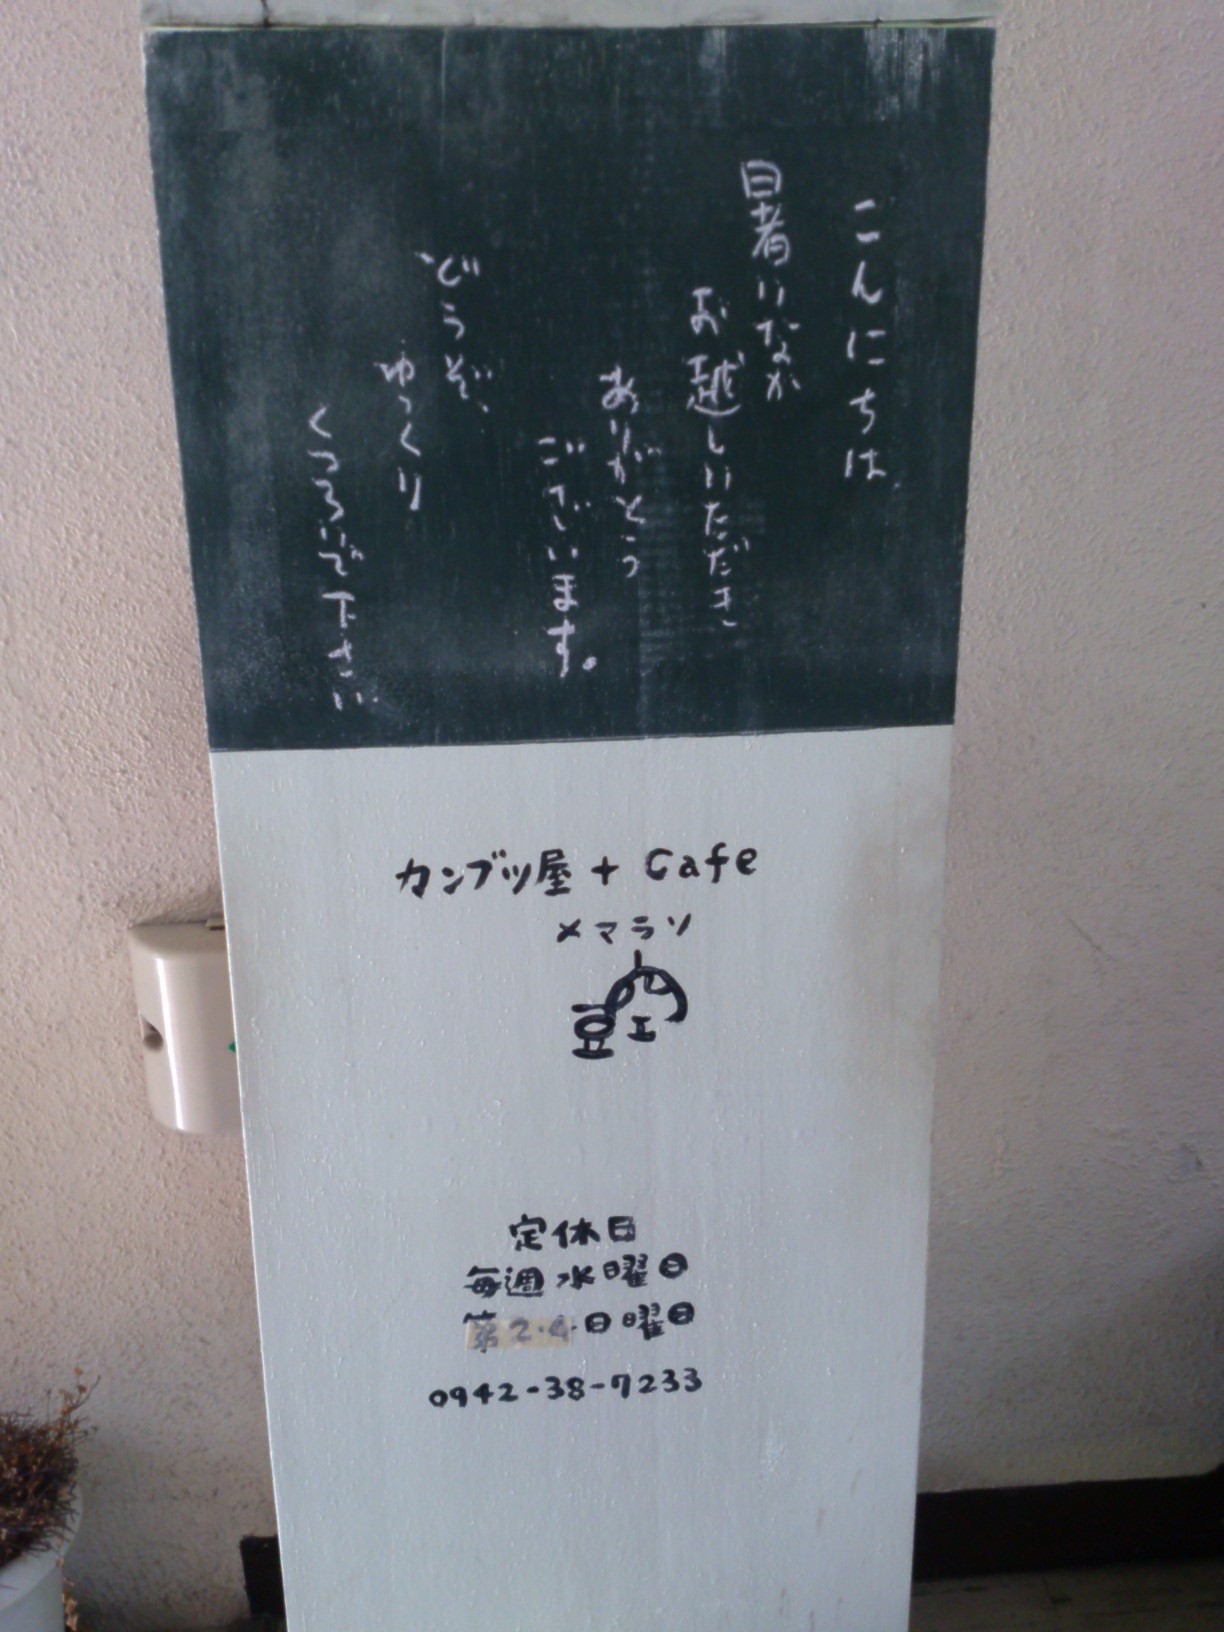 こんにちは
暑いなか
お越しいただき
ありがとう
ございます。
どうぞ、
ゆっくり
くつろいで下さい
カンブツ屋 + Cafe
メマラソ
豆空
定休日
毎週水曜日
第2・4日曜日
0942-38-7233